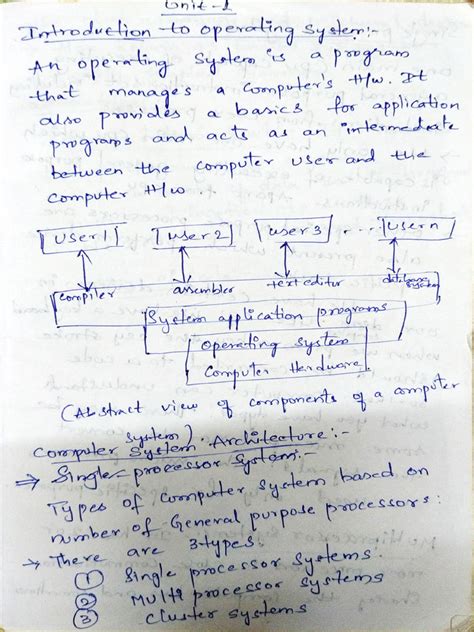 Unit-1
Introduction to operating System:-
An operating System is a program
that manages a Computer's H/w. It
also provides a basics for application
programs and acts as an intermediate
between the computer user and the
computer H/w.
User 1 user 2 user 3 ... User n
compiler assembler text editor database system
System application programs
operating system
Computer Hardware
(Abstract view of components of a computer
system)
Computer System Architecture:-
⇒ Single-processor System:-
Types of Computer System based on
number of General purpose processors:
→ There are 3 types
① Single processor systems.
② Multi processor systems
③ cluster systems